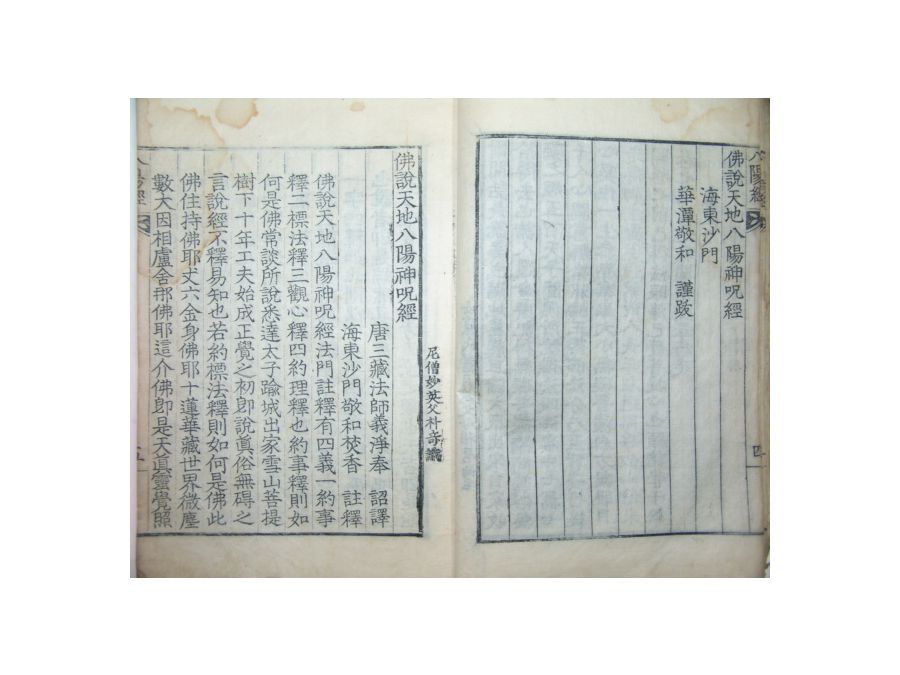 八陽經
四
佛說天地八陽神呪經
海東沙門
華潭敬和　謹跋
尼僧妙英父朴
佛說天地八陽神呪經
唐三藏法師義淨奉　詔譯
海東沙門敬和焚香　註釋
佛說天地八陽神呪經法門註釋有四義一約事
釋二標法釋三觀心釋四約理釋也約事釋則如
何是佛常談所說悉達太子踰城出家雪山菩提
樹下十年工夫始成正覺之初卽說眞俗無碍之
言說經不釋易知也若約標法釋則如何是佛此
佛住持佛耶丈六金身佛耶十蓮華藏世界微塵
數大因相盧舍那佛耶這介佛卽是天眞靈覺照
八陽經
五